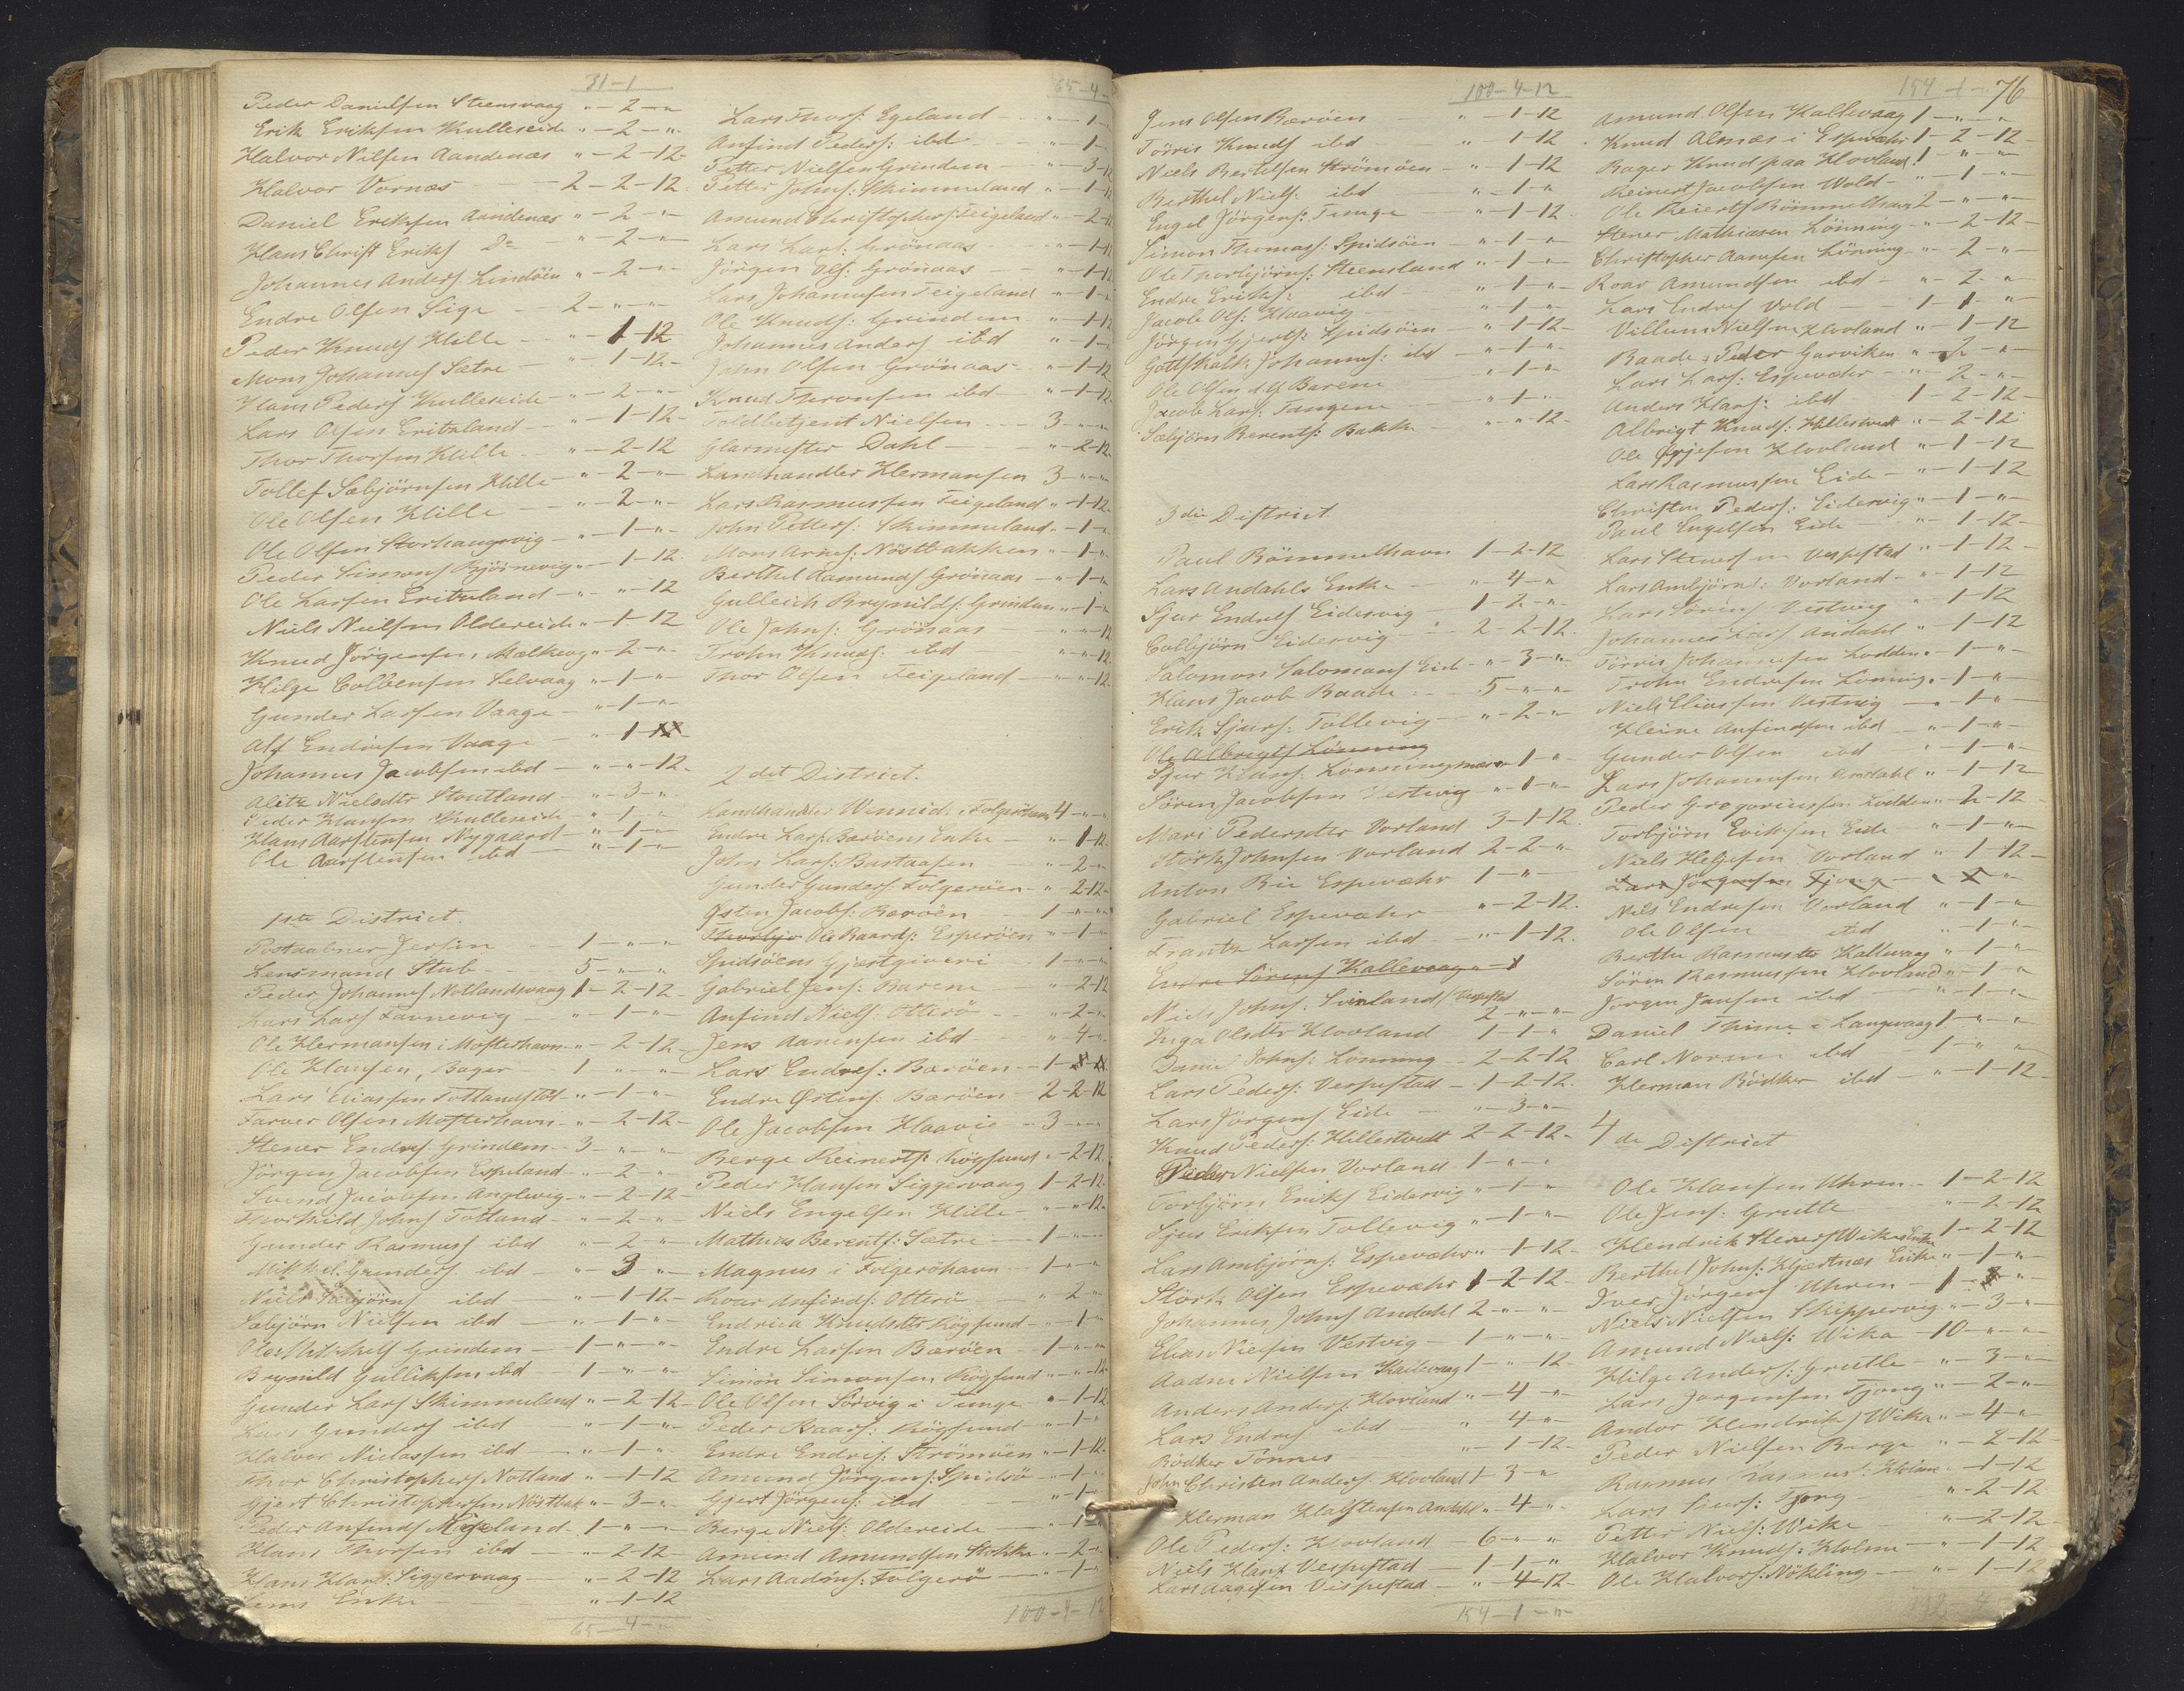 31-1
Peder Danielsen Steensvaag " - 2 - "
Erik Eriksen Kulleseide " - 2 - "
Halvor Nilsen Aandenæs " - 2 - 12
Halvor Vornæs 2 - 2 - 12
Daniel Eriksen Aandenæs " - 2 - "
Hans Christ Eriks Do " - 2 - "
Johannes Anders. Lindöen " - 2 - "
Endre Olsen Sige 2 - " - "
Peder Knuds Hille " - 1 - 12
Mons Johannes Sætre " - 1 - 12
Hans Peders Kulleseide " - 2 - "
Lars Olsen Eritsland " - 1 - 12
Thor Thorsen Hille " - 2 - 12
Tollef Sæbjörnsen Hille " - 2 - "
Ole Olsen Hille " - 2 - "
Ole Olsen Storhaugvig " - 1 - "
Peder Simons Bjørnevig " - 1 - 12
Ole Larsen Eritsland " - " - 12
Niels Nielsen Oldereide " - 1 - 12
Knud Jörgensen Mælkevg " - 2 - "
Hilge Colbensen Selvaag " - 1 - "
Gunder Larsen Vaage " - 1 - "
Alf Endresen Vaage " - 1
Johannes Jacobsen ibd " - " - 12
Alitz Nielsdtr Stoutland " - 3 - "
Peder Hansen Kulleseide " - 1 - "
Hans Aarstensen Nygaard " - 1 - "
Ole Aarstensen ibd " - 1 - "
1ste District.
Postaabner Jersin 1 - " - "
Lensmand Stub 5 - " - "
Peder Johannes Notlandsvaag 1 - 2 - 12
Lars Lars Lavnevig " - 1 - "
Ole Hermansen i Mosterhavn " - 2 - 12
Ole Hansen, Bager 1 - " - "
Lars Eliassen Totland " - 1 - "
Farver Olsen Mosterhavn " - 2 - 12
Stener Endres Grindem 3 - " - "
Jörgen Jacobsen Espeland " - 2 - "
Svend Jacobsen Anglevig " - 2 - 12
Thorkild Johns Totland " - 2 - "
Gunder Rasmus ibd " - 2 - "
Mikkel Gunders ibd " - 3 - "
Niels Sæbjörns ibd " - 1 - 12
Sæbjörn Nielsen ibd " - 1 - "
Ole Mikkels Grindem 1 - " - "
Brynild Gulliksen ibd 1 - " - "
Gunder Lars Skimmeland " - 2 - 12
Lars Gunders ibd " - 1 - "
Halvor Nielassen ibd " - 1 - "
Thor Christophers Notland " - 1 - 12
Gjert Christophersen Nöstbak " - 3 - "
Peder Anfinds 1 - " - "
Hans Thorsen ibd " - 2 - 12
Hans Hans: Siggervaag " - 2 - 12
Enke " - 1 - 12
65 - 4 - "
65 - 4 -
Lars Thors: Egeland " - 1 -
Anfind Peders: ibd " - 1 -
Petter Nielsen Grindem " - 3 - 12
Petter Johns: Skimmeland " - 1 - 12
Amund Christophers: Feigeland " - 2 - 12
Lars Lars: Grönaas " - 1 - 12
Jörgen Ols: Grönaas " - 1 - 12
Lars Johannesen Feigeland " - 1 -
Ole Knuds: Grindem " - 1 - 12
Johannes Anders ibd " - 1 -
John Olsen Grönaas " - 1 - 12
Knud Thronsen ibd " - 1 - 12
Toldbetjent Nielsen 3 - " - "
Glarmester Dahl " - 2 - 12
Landhandler Hermansen 3 - " - "
Lars Rasmussen Feigeland " - 1 - 12
John Petters: Skimmeland " - 1 - "
Mons Arnes: Nöstbakken " - 1 - "
Berthel Aamunds Grönaas " - 1 - "
Gulleich Brynilds: Grindem " - 1 - "
Ole Johns: Grönaas " - " - 12
Trohn Knuds: ibd " - " - 12
Thor Olsen Feigeland " - " - 12
2det District.
Landhandler Wennid. i Folgeröhavn 4 - " - "
Endre Lars: Baröens Enke " - 1 - 12
John Lars: Bastaasen " - 2 - "
Gunder Gunders: Folgeröen " - 2 - 12
Østen Jacobs: Baröen 1 - " - "
Ole Baards: Esperöen " - 1 - "
Spidsöens Gjæstgiveri 1 - " - "
Gabriel Jens: Barene " - 2 - 12
Anfind Niels: Otterö " - 2 - "
Jens Aanensen ibd " - 4 - "
Lars Endres: Baröen 1
Endre Østens: Baröen 2 - 2 - 12
Ole Jacobsen Haavig 3 - " - "
Berge Reinerts: Rögsund " - 2 - 12
Peder Hansen Siggervaag 1 - 2 - 12
Niels Engelsen Hille " - " - 12
Mathias Berents: Sætre 1 - " - "
Magnus i Folgeröhavn 1 - " - "
Roar Anfinds: Otterö " - 2 - "
Endrica Knudsdtr Rögsund " - 1 - "
Endre Larsen Baröen 1 - " - "
Simon Simonsen Rögsund " - " - 12
Ole Olsen Sörvig i Tunge " - 1 - 12
Peder Baars: Rögsund " - 1 - "
Endre Endres: Strömöen " - 1 - 12
Amund Jörgens: Spidsö " - 1 - "
Gjert Jörgens: ibd " - 1 - "
Berge Niels: Oldereide " - 1 - "
Amund Amundsen Stokke " - 2 - "
Lars Aadns: Folgerö " - 1 - "
100 - 4 - 12
100 - 4 - 12
Jens Olsen Baröen " - 1 - 12
Törris Knuds ibd " - 1 - 12
Niels Bertelsen Strömöen " - 1 - 12
Berthel Niels: ibd " - 1 - "
Engel Jörgens: Tunge " - 1 - 12
Simon Thomas: Spidsöen " - 1 - "
Ole Thorbjörns: Steensland " - 1 - "
Endre Eriks: ibd " - 1 - "
Jacob Ols: Haavig " - 1 - "
Jörgen Gjerts: Spidsöen " - 1 - 12
Gottskalk Johannes: ibd " - 1 - "
Ole Olsen d.y. Barene " - 1 - "
Jacob Lars: Tangene " - 1 - "
Sæbjörn Berents: Bakke " - " - 12
3die District
Paul Römmelhavn 1 - 2 - 12
Lars Andahls Enke " - 4 - "
Sjur Endres Eidesvig 1 - 2 - "
Colbjörn Eidesvig 2 - 2 - 12
Salomon Salomons Eid " - 3 - "
Hans Jacob Baade 5 - " - "
Erik Sjurs: Tollevig " - 2 - "
Ole Albrigts Lönning
Sjur Hans: Lönningmann " 1 - "
Sören Jacobsen Vestvig " - 1 - "
Mari Pedersdtr Vorland 3 - 1 - 12
Störk Johnsen Vorland 2 - 2 - "
Anton Bie Espevæhr 1 - " - "
Gabriel Espevæhr " - 2 - 12
Frantz Larsen ibd " - 1 - 12
Endre Sörens Kallevaag " - 1
Niels Johns: Svinland / Vespestad 2 - " - "
Inga Olsdtr Hovland 1 - 1 - "
Daniel Johns: Lönning 2 - 2 - 12
Lars Peders: Vespestad 1 - 2 - 12
Lars Jörgens Eide " - 3 - "
Knud Peders: Hillestvedt 2 - 2 - 12
Peder Nielsen Vorland 1 - " - "
Torbjörn Eriks Eidesvig " - 1 - "
Sjur Eriksen Tollevig " - 1 - "
Lars Ambjörns: Espevæhr " - 1 - 12
Störk Olsen Espevæhr 1 - 2 - 12
Johannes Johns Andahl 2 - " - "
Elias Nielsen Vestvig 1 - " - "
Aadne Nielsen Kallevaag 1 - " - 12
Anders Anders: Hovland " - 4 - "
Lars Endres: ibd " - 4 - "
Bödker Tönnes " - 1 - 12
John Christen Anders. Hovland 1 - 3 - "
Herman Halstensen Andahl " - 4 - "
Ole Peders: Hovland 6 - " - "
Niels Hans Vespestad 1 - 1 - "
Lars Aagesen Vespestad " - 4 - 12
154 - 1 - "
154 - 1 - 76
Amund Olsen Kallevaag 1 - " - "
Knud Almæs i Espevæhr 1 - 2 - 12
Bager Knud paa Hovland 1 - " - "
Reinert Jacobsen Wold " - 1 - "
Ole Reierts Römmelhavn 2 - " - "
Stener Mathiasen Lönning " - 2 - 12
Christopher Aamsen Lönning " - 2 - "
Roar Amundsen ibd " - 2 - "
Lars Endres Vold 1 - 1 - "
Villum Nielsen Hovland " - 1 - 12
Baade, Peder Garviken " - 2 - "
Lars Lars: Espevæhr " - 2 - "
Anders Hans: ibd 1 - 2 - 12
Albrigt Knuds: Hillestvedt " - 2 - 12
Ole Hovland " - 1 - 12
Lars Rasmussen Eide " - 1 - 12
Christen Peders: Eidesvig " - 1 - "
Paul Engelsen Eide " - 1 - 12
Lars Stenersen Vespestad " - 1 - 12
Lars Ambjörns: Vorland " - 1 - 12
Lars Sörens Vestvig " - 1 - 12
Johannes Lars Andahl " - 1 - 12
Törris Johannesen Lodden " - 1 - "
Trohn Endresen Lönning " - 1 - "
Niels Eliassen Vestvig " - 1 - "
Heine Anfindsen ibd " - 1 - "
Gunder Olsen ibd " - 1 - "
Lars Johannesen Andahl " - 1 - 12
Peder Gregoriussen Lodden " - 2 - 12
Torbjörn Eriksen Eide " - 1 - "
Niels Helgesen Vorland " - 1 - 12
Lars Jörgensen Fjong
Niels Endresen Vorland " - 1 - "
Ole Olsen ibd " - 1 - "
Berthe Rasmusdtr Kallevaag " - 1 - "
Sören Rasmussen Hovland " - 1 - "
Jörgen Jansen ibd " - 1 - "
Daniel Thime i Langevaag 1 - " - "
Carl Norman ibd 1 - " - "
Herman Bödker ibd " - 1 - 12
4de District
Ole Hansen Uhren 1 - 2 - 12
Ole Jens: Grutle " - 2 - 12
Hendrik Steners Wikes Enke 1 - 2 - 12
Berthel Johns: Kjærtnæs Enke " - 1 - "
Iver Jörgens Uhren 1
Niels Nielsen Skippervig " - 3 - "
Amund Niels: Wika 10 - " - "
Hilge Anders: Grutle " - 3 - "
Lars Jörgensen Fjong " - 2 - "
Andor Hendriks Wika " - 4 - "
Peder Nielsen Berge " - 2 - 12
Rasmus Rasmus: Holme " - 1 - 12
Lars Siurs: Fjong " - 2 - 12
Petter Niels: Wike " - 2 - 12
Halvor Knuds: Holme " - 1 - 12
Ole Halvors: Nökling " - 1 - 12